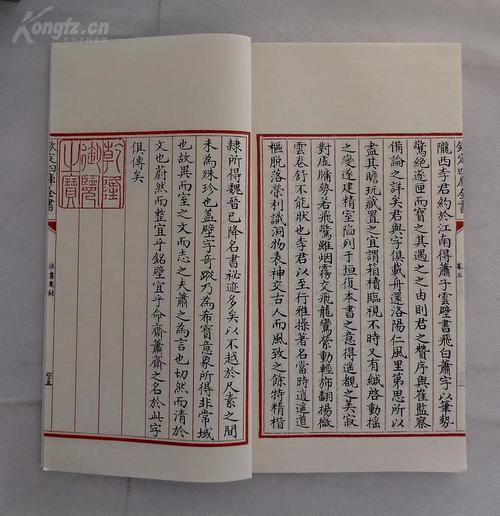 Kongfz.cn
欽定四庫全書
卷三
隴西李君約於江南得蕭子雲壁書飛白蕭字以筆勢
驚絕遂匣而寶之其遇之之由則君之贊序與崔監察
備論之詳矣君與字俱載舟還洛陽仁風里第思所以
盡其瞻玩藏置之宜謂箱櫝臨視不時又有緘啓動搖
之變遂建精室陷列于垣復本書之意得遂觀之美寂
對虛牖勢若飛驚離烟霧交飛龍鸞縈動輕斾翻揚微
雲卷舒不能狀也李君以至行雅操著名當時逍遙道
樞脫落榮利識洞物表神交古人而風致之餘特精楷
隸所得魏晉已降名書祕迹多矣以不越於尺素之間
未為殊珍也蓋壁字奇蹤乃為希寶意象所得非常域
也故異而室之文而志之夫蕭之為言也切然而清於
文也蔚然而整宜乎銘壁宜乎命齋蕭齋之名於此字
俱傳矣
乾隆御覽之寶
欽定四庫全書
法書要錄